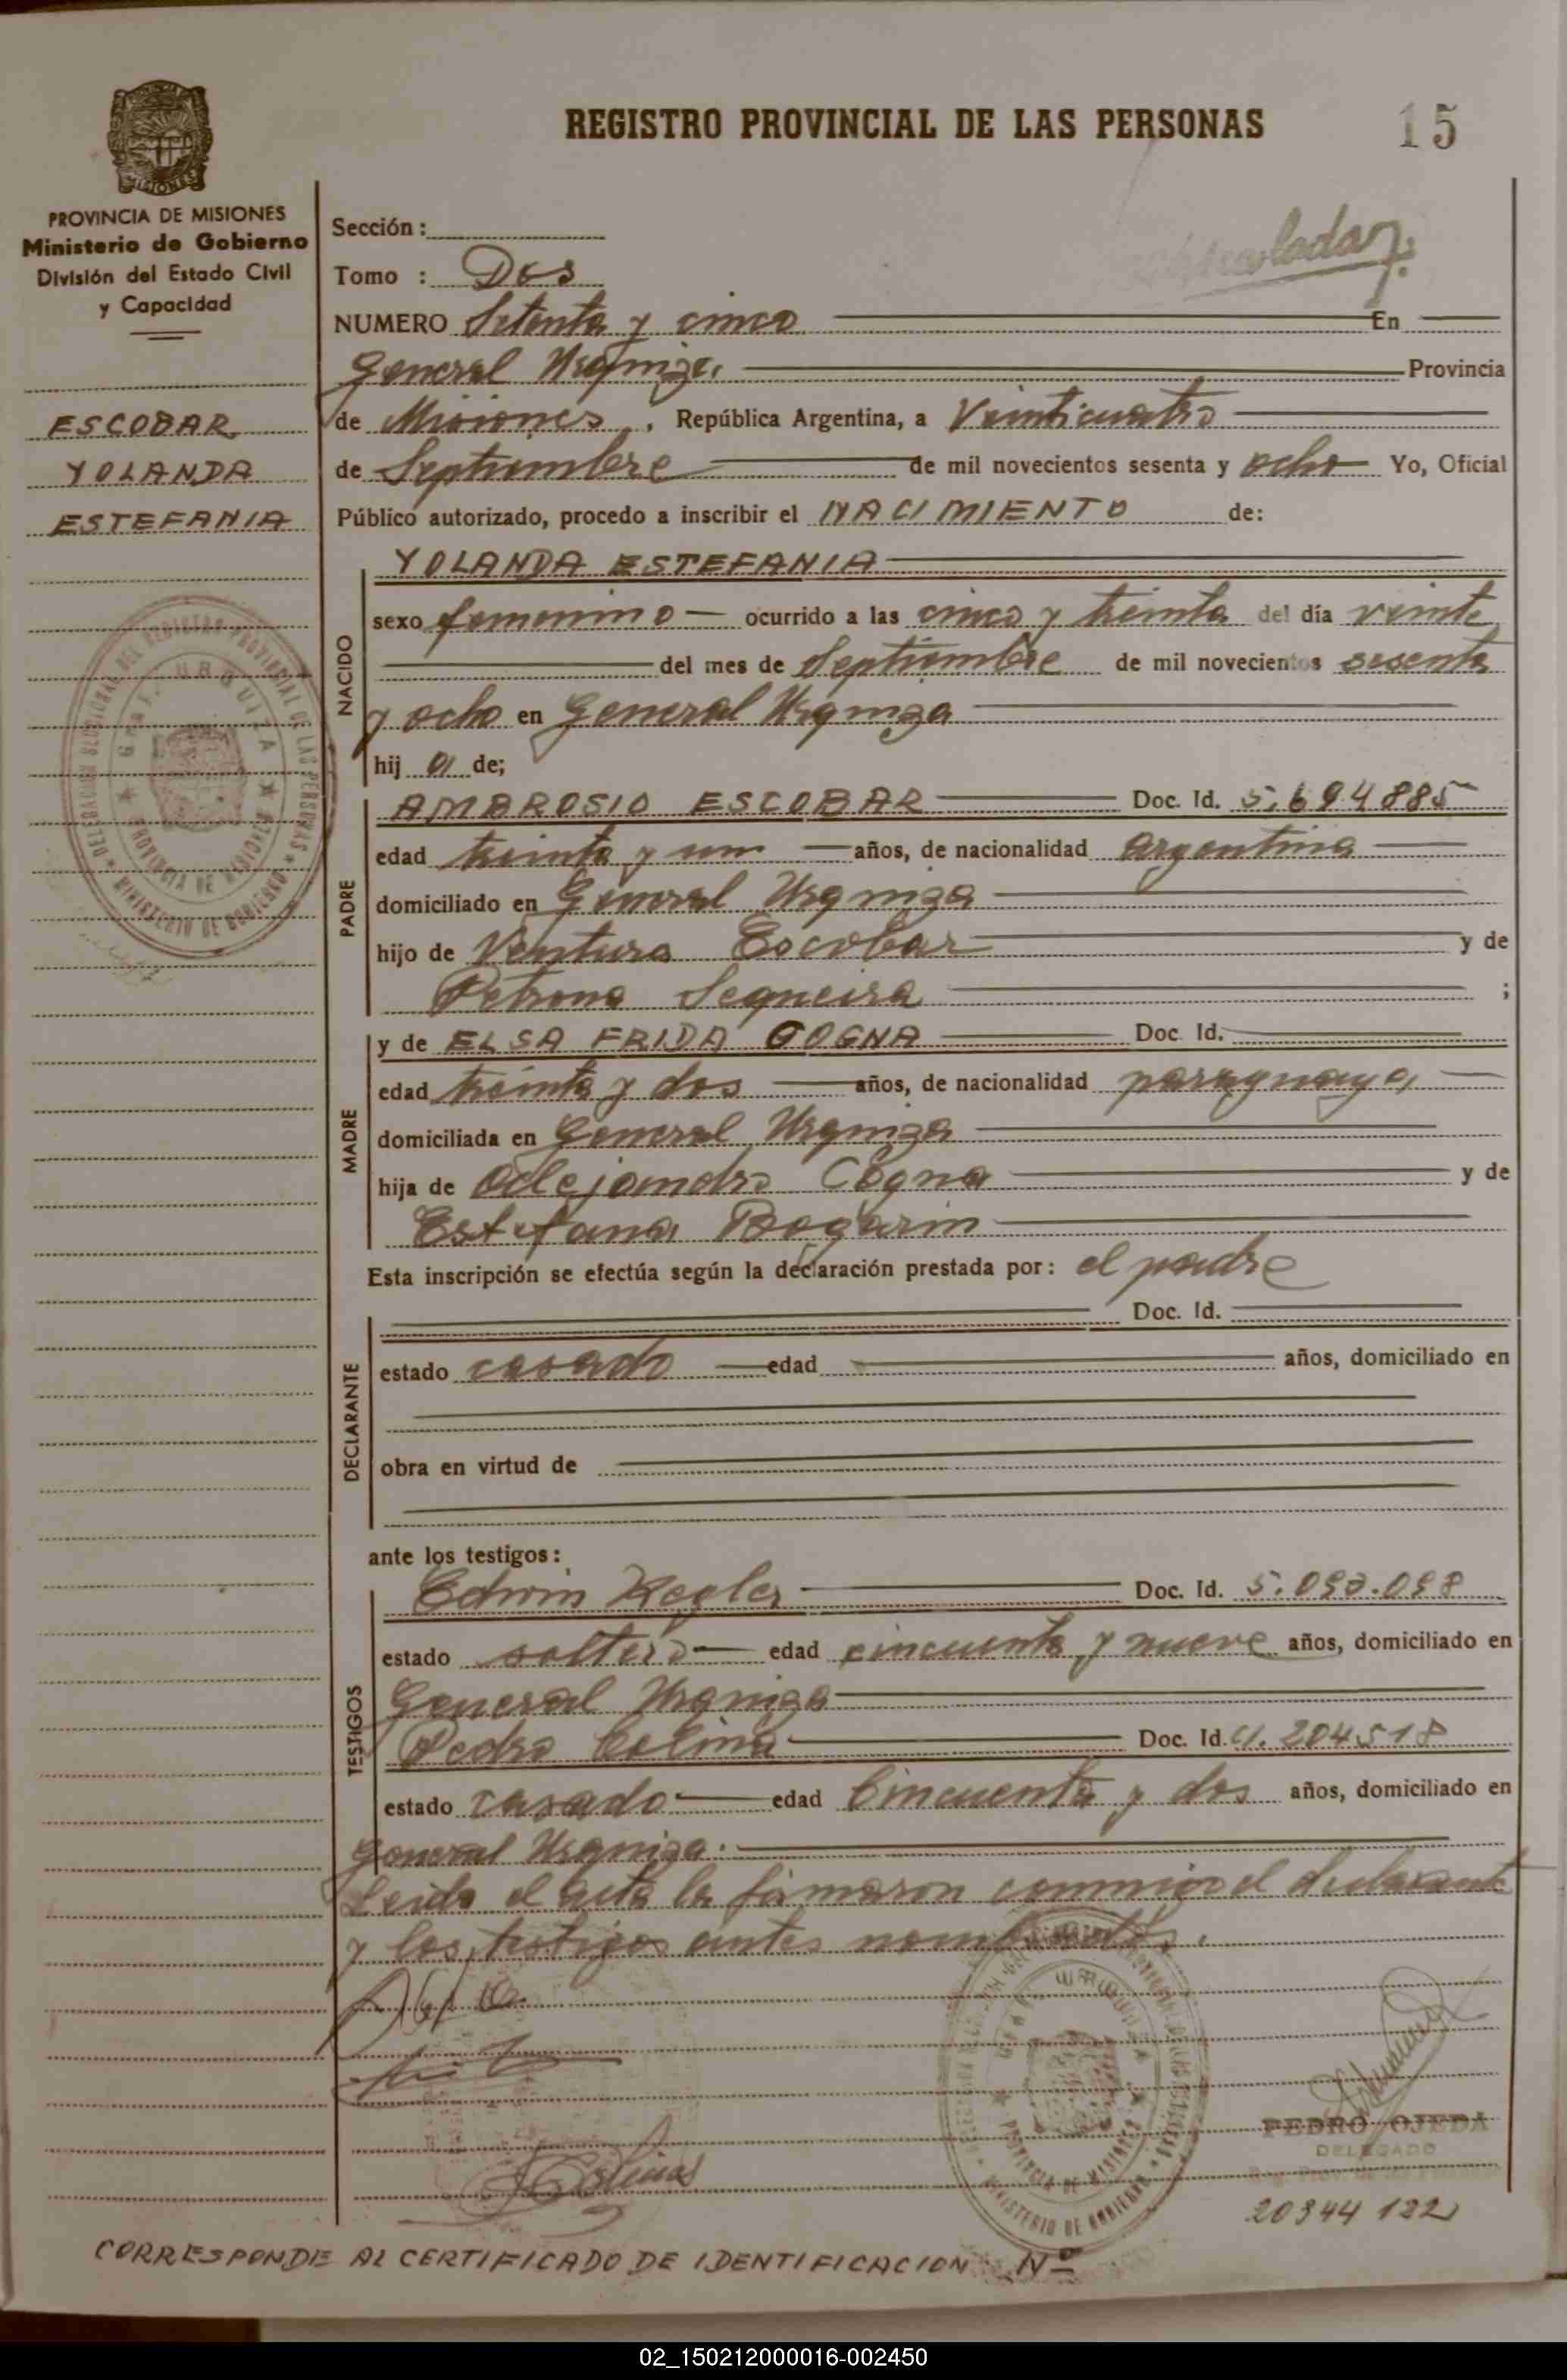 REGISTRO PROVINCIAL DE LAS PERSONAS
15
MISIONES
PROVINCIA DE MISIONES
Ministerio de Gobierno
División del Estado Civil
y Capacidad
ESCOBAR
YOLANDA
ESTEFANIA
Sección :
Tomo : Dos
NUMERO Setenta y cinco En
General Urquiza. Provincia
de Misiones, República Argentina, a Veinticuatro
de Septiembre de mil novecientos sesenta y ocho Yo, Oficial
Público autorizado, procedo a inscribir el NACIMIENTO de:
NACIDO
YOLANDA ESTEFANIA
sexo femenino ocurrido a las cinco y treinta del día veinte
del mes de Septiembre de mil novecientos sesenta
y ocho en General Urquiza
hij a de;
PADRE
AMBROSIO ESCOBAR Doc. Id. 5.694885
edad treinta y un años, de nacionalidad argentina
domiciliado en General Urquiza
hijo de Ventura Escobar y de
Petrona Sequeira ;
MADRE
y de ELSA FRIDA COGNA Doc. Id.
edad treinta y dos años, de nacionalidad paraguaya
domiciliada en General Urquiza
hija de Alejandro Cogna y de
Estefana Bogarin
Esta inscripción se efectúa según la declaración prestada por: el padre
DECLARANTE
Doc. Id.
estado casado edad años, domiciliado en
obra en virtud de
ante los testigos:
TESTIGOS
Edwin Kegler Doc. Id.
estado soltero edad cincuenta y nueve años, domiciliado en
General Urquiza
Pedro Colina Doc. Id. 204518
estado casado edad Cincuenta y dos años, domiciliado en
General Urquiza.
Leida el acta la firmaron conmigo el declarante
y los testigos antes nombrados.
PEDRO OJEDA
DELEGADO
20344 122
CORRESPONDE AL CERTIFICADO DE IDENTIFICACION Nº
02_150212000016-002450